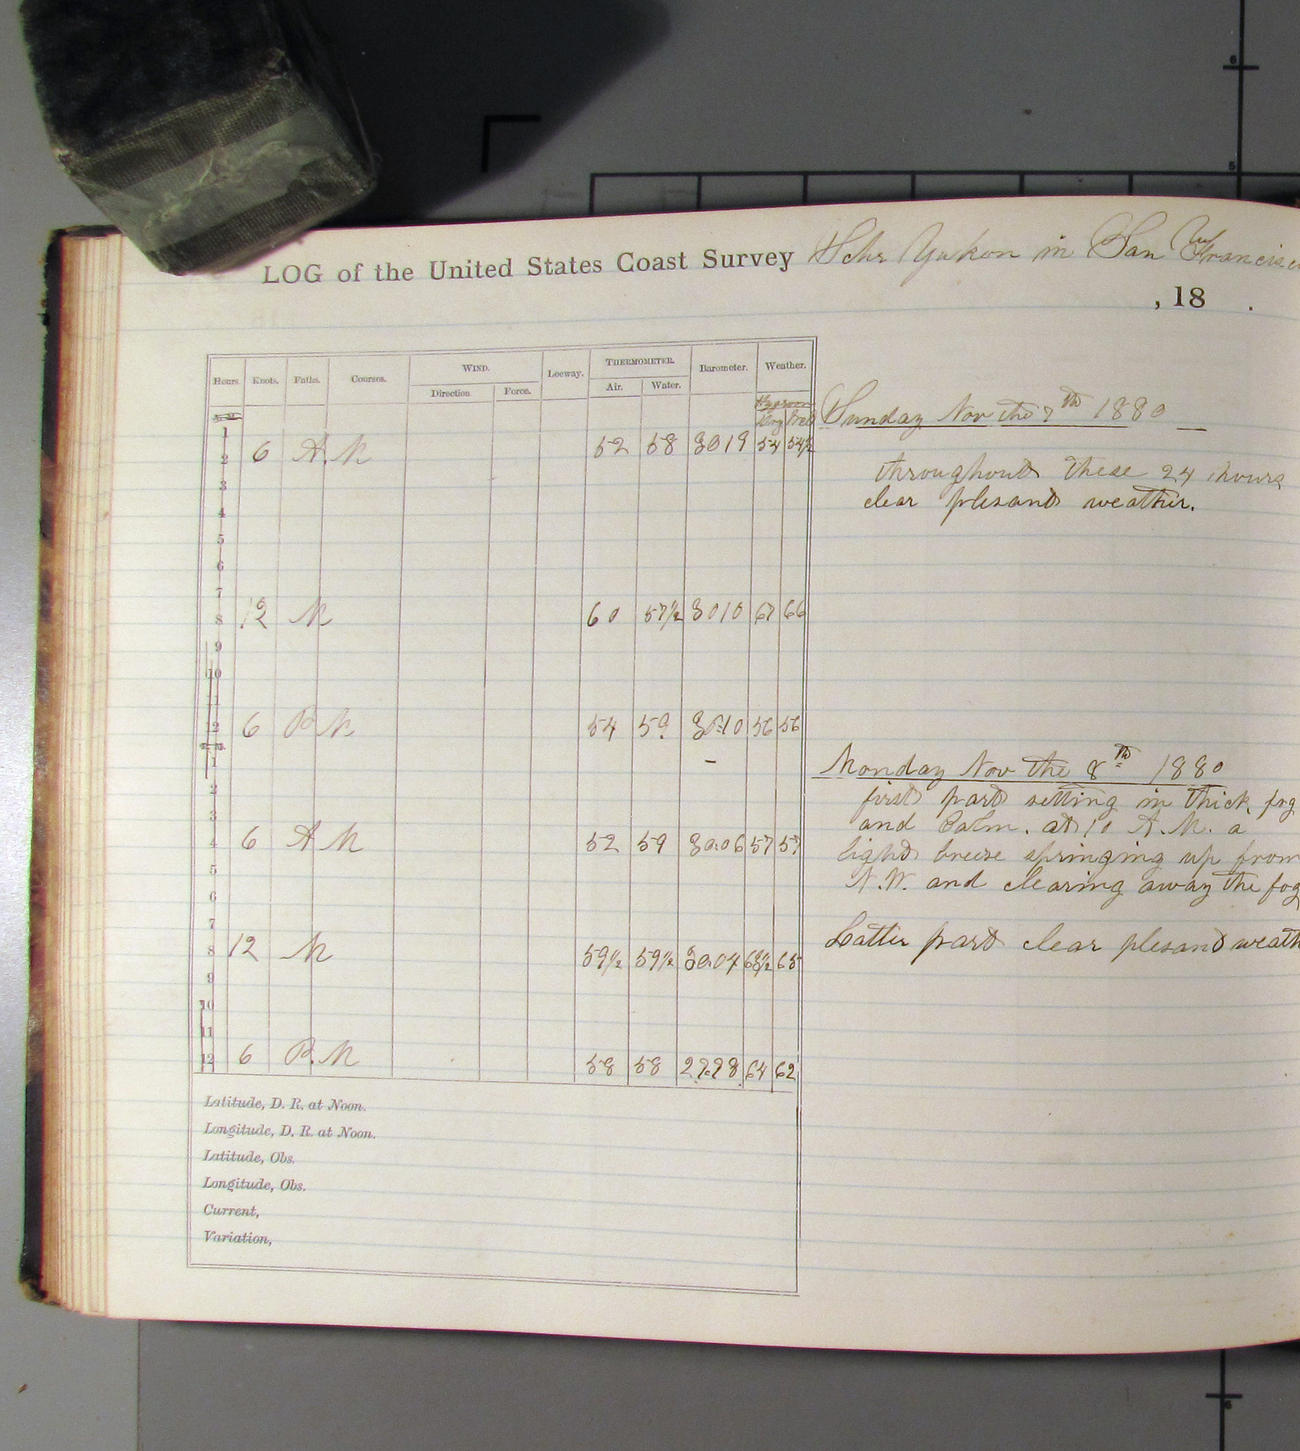 LOG of the United States Coast Survey Schr Yukon in San Francisco
, 18 .
Hours. Knots. Faths. Courses. WIND. Leeway. THERMOMETER. Barometer. Weather.
Direction Force. Air. Water.
Dry Wet
Sunday Nov the 7th 1880
1
2 6 A.M 52 58 3019 54 54½
throughout these 24 hours
3
clear plesant weather.
4
5
6
7
8 12 M 60 57½ 3010 67 66
9
10
11
12 6 P.M 54 59 30.10 56 56
1
Monday Nov the 8th 1880
2
first part setting in thick fog
3
and Calm. at 10 A.M. a
4 6 A M 52 59 30.06 57 57
light breeze springing up from
5
N.W. and clearing away the fog
6
7
Latter part clear plesant weath
8 12 M 59½ 59½ 30.04 68½ 68
9
10
11
12 6 P.M 58 58 29.98 64 62
Latitude, D. R. at Noon.
Longitude, D. R. at Noon.
Latitude, Obs.
Longitude, Obs.
Current,
Variation,